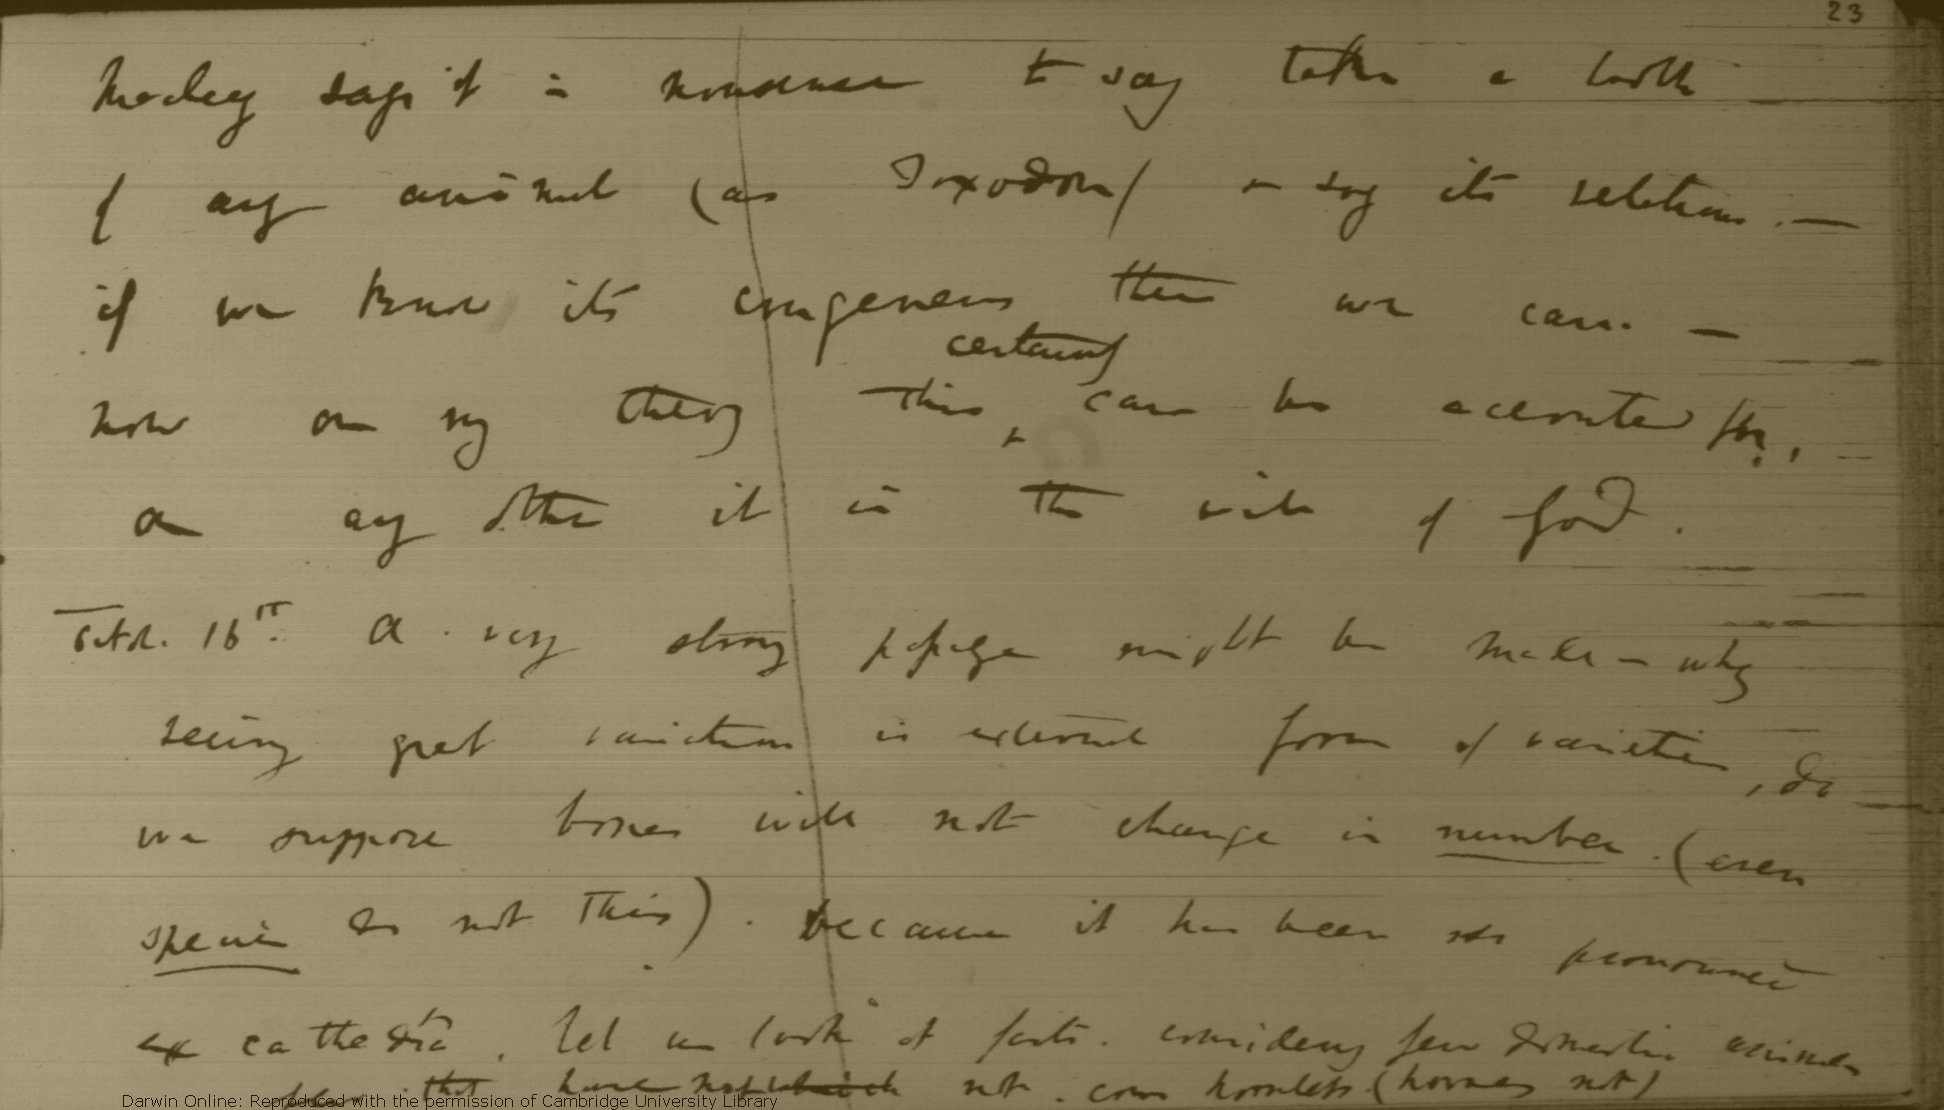 23
Macleay says it is nonsense to say take a tooth
of any animal (as Toxodon) & say its relations. —
if we know its congeners then we can. —
certainly
now on my theory this ‸ can be accounted for,
on any other it is the will of God.
Octob. 16th. A very strong passage might be made — why
seeing great variation in external form of varieties, do
we suppose bones will not change in number. (even
species do not this). because it has been so pronounced
ex cathedra. let us look at facts. considering few domestic animals
that have not which not. cows hornless. (horns not)
Darwin Online: Reproduced with the permission of Cambridge University Library